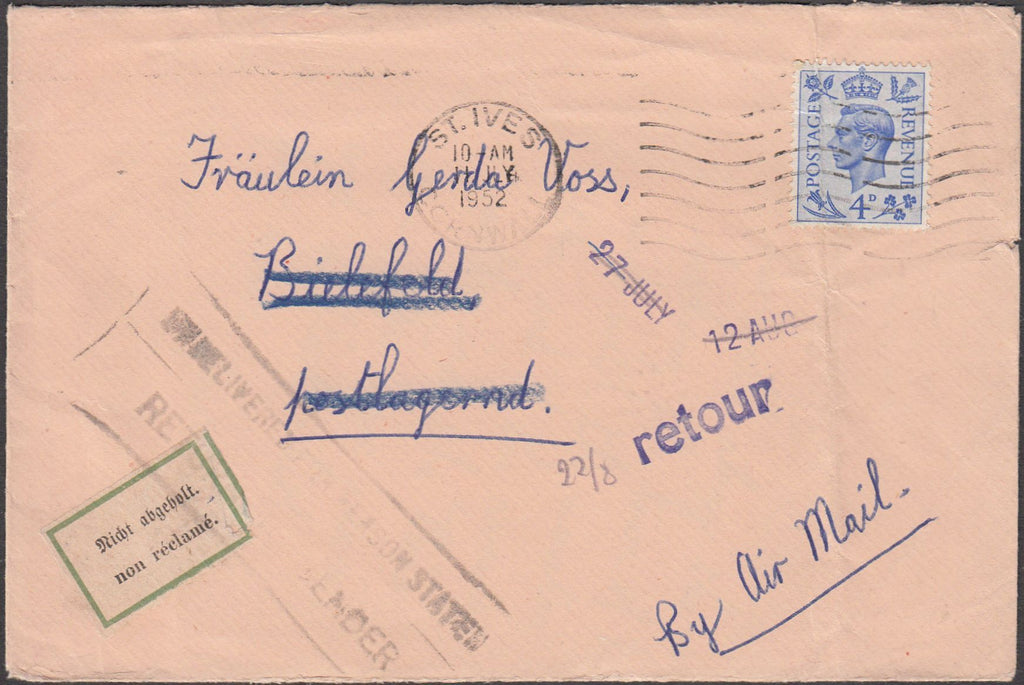 POSTAGE REVENUE
4D
ST. IVES
10-AM
JLY
1952
Fräulein Gerda Voss,
Bielefeld
postlagernd.
27 JULY
12 AUG
retour
22/8
UNDELIVER
REASON STATED
RE
SENDER
Nicht abgeholt.
non réclamé.
By Air Mail.